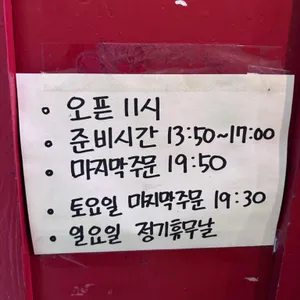 • 오픈 11시
• 준비시간 13:50~17:00
• 마지막주문 19:50
• 토요일 마지막주문 19:30
• 일요일 정기휴무날